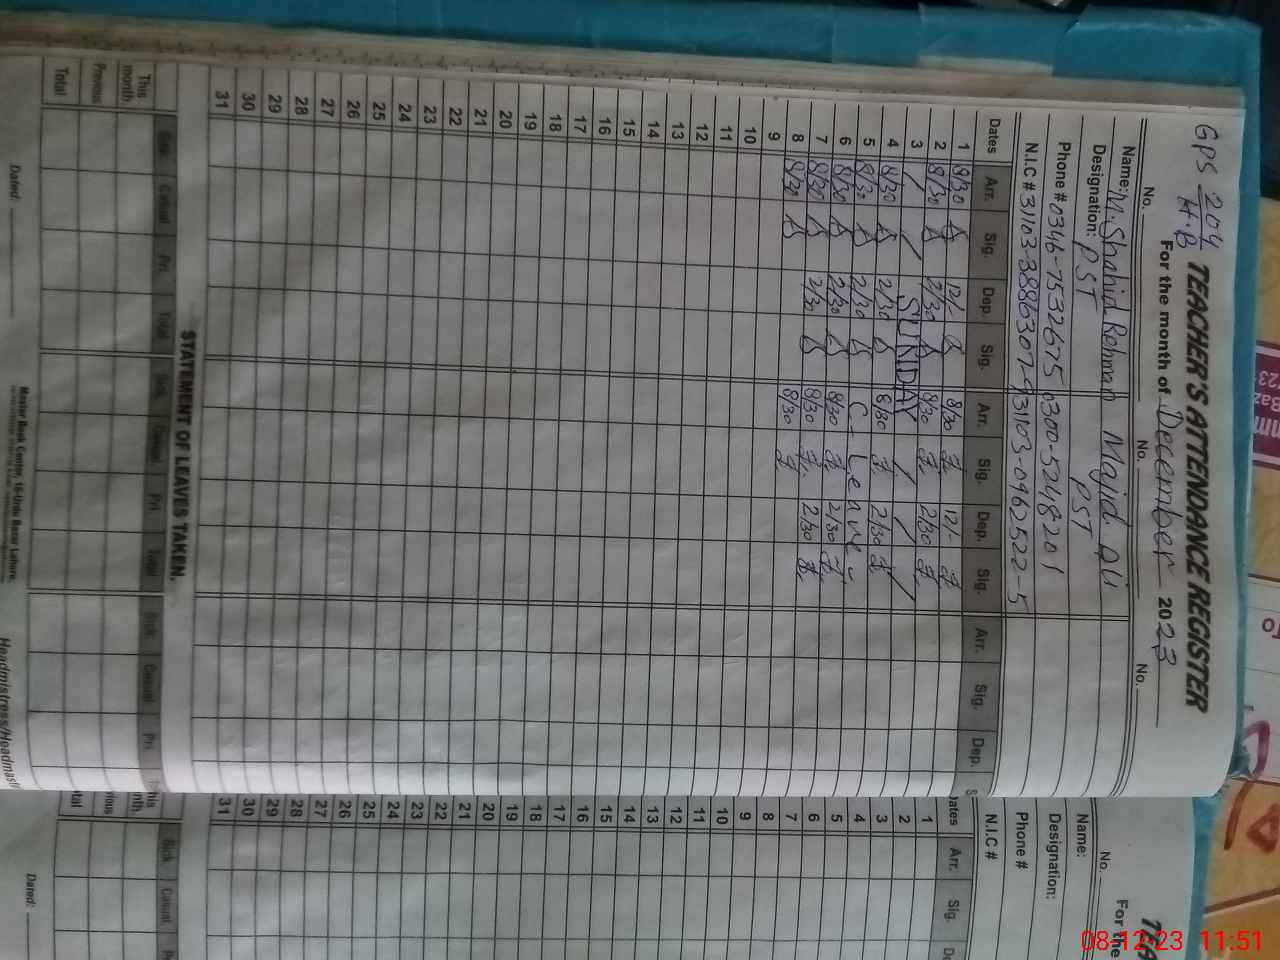 GPS 204/H.B TEACHER'S ATTENDANCE REGISTER
For the month of December 2023
No. No. No.
Name: M. Shahid Rehman Majid Ali
Designation: PST PST
Phone # 0346-7532675 0300-5248201
N.I.C # 31103-0962522-5
Dates Arr. Sig. Dep. Sig. Arr. Sig. Dep. Sig. Arr. Sig. Dep. S
1 8/30 12/- 8/30 12/-
2 8/30 2/30 8/30 2/30
3 SUNDAY
4 8/30 2/30 8/30 2/30
5 8/30 2/30 C-Leave
6 8/30 2/30 8/30 2/30
7 8/30 2/30 8/30 2/30
8 8/30 8/30
9
10
11
12
13
14
15
16
17
18
19
20
21
22
23
24
25
26
27
28
29
30
31
STATEMENT OF LEAVES TAKEN.
Casual Pri. Total Sick. Casual Pri Total Sick. Casual Pri.
This month
Previous
Total
Dated: Master Book Center, 16-Urdu Bazar Lahore. Headmistress/Headmast
TEA
For the
No.
Name:
Designation:
Phone #
N.I.C #
ates Arr. Sig. De
1
2
3
4
5
6
7
8
9
10
11
12
13
14
15
16
17
18
19
20
21
22
23
24
25
26
27
28
29
30
31
Sick Casual P
his nth.
vious
tal
Dated:
08-12-23 11:51